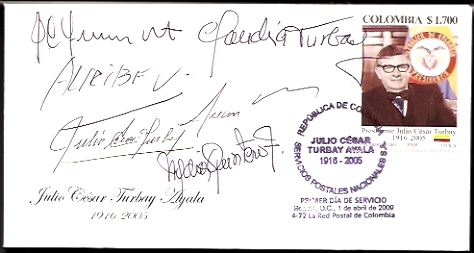 COLOMBIA $1.700
Claudia Turbay
AURIBE V.
Julio César Turbay
Presidente Julio César Turbay
1916 - 2005
REPÚBLICA DE COLOMBIA
JULIO CÉSAR
TURBAY AYALA
1916 - 2005
SERVICIOS POSTALES NACIONALES S.A.
PRIMER DÍA DE SERVICIO
Bogotá, D.C., 1 de abril de 2009
4-72 La Red Postal de Colombia
Julio César Turbay Ayala
1916 2005